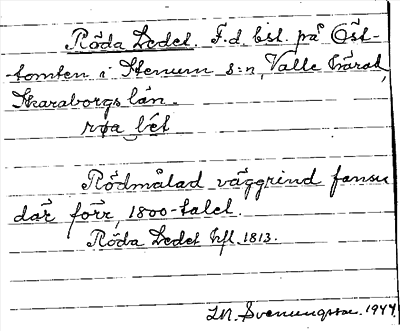 Röda Ledet. F.d. bst. på Öst-
tomten i Stenum s:n, Valle härad,
Skaraborgs län.
røa lét
Rödmålad väggrind fanns
där förr, 1800-talet.
Röda Ledet hfl. 1813.
1944